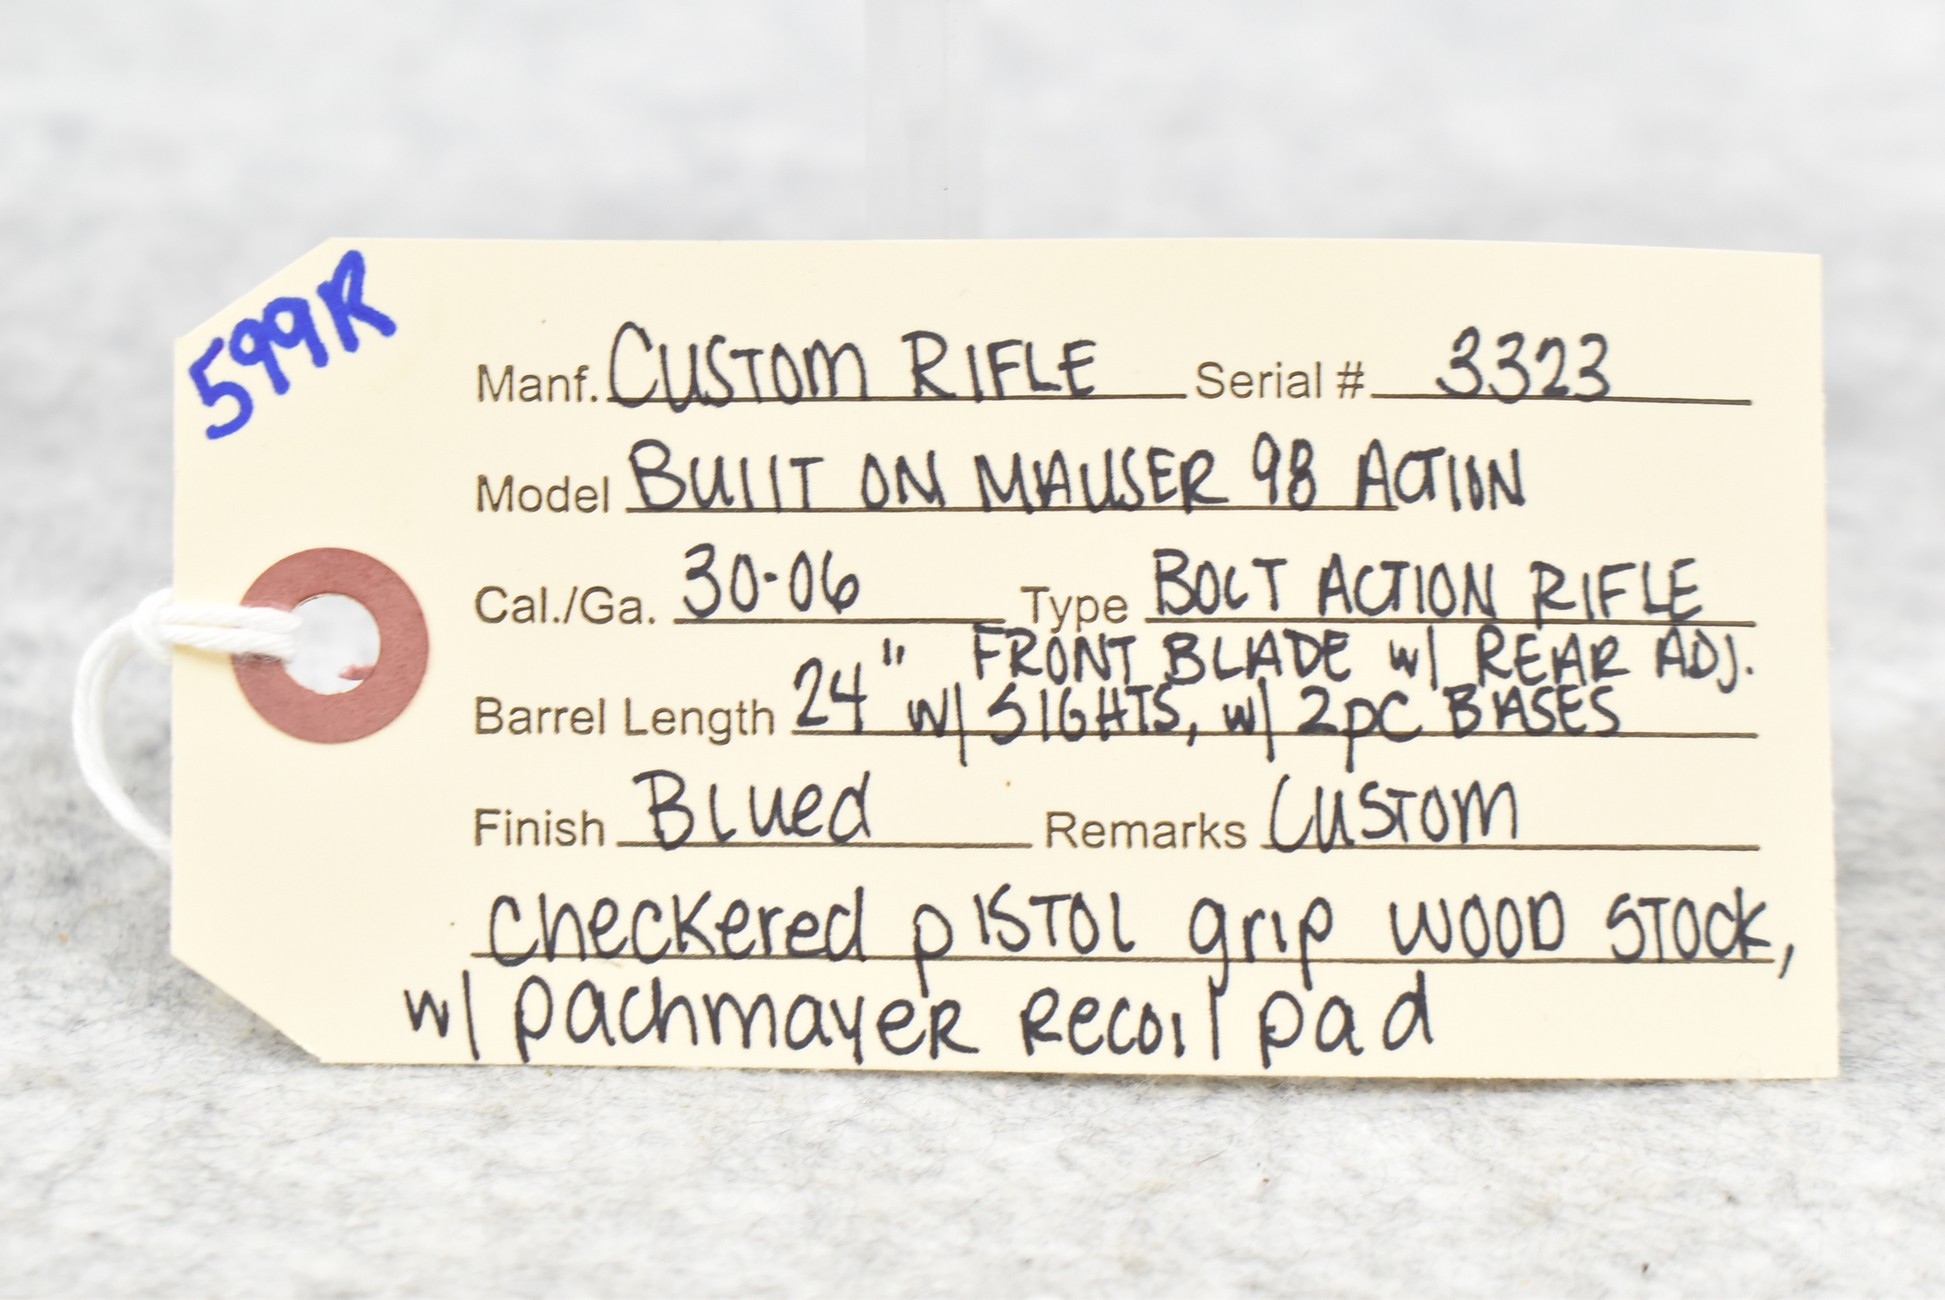 599R
Manf. CUSTOM RIFLE Serial # 3323
Model BUIIT ON MAUSER 98 ACTION
Cal./Ga. 30-06 Type BOLT ACTION RIFLE
FRONT BLADE w/ REAR ADJ.
Barrel Length 24" w/ SIGHTS, w/ 2pc BASES
Finish Blued Remarks Custom
checkered pistol grip wood stock,
w/ pachmayer recoil pad